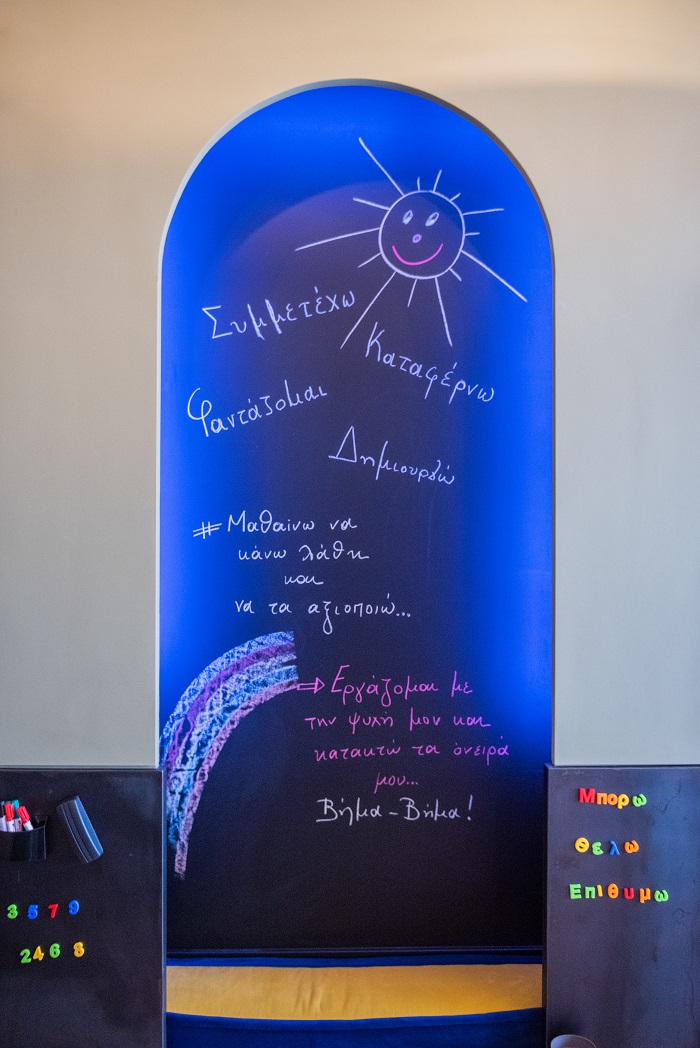 Συμμετέχω
Καταφέρνω
Φαντάζομαι
Δημιουργώ
# Μαθαίνω να
κάνω λάθη
και
να τα αξιοποιώ...
⇒ Εργάζομαι με
την ψυχή μου και
κατακτώ τα όνειρά
μου...
Βήμα - Βήμα!
Μπορω
Θελω
Επιθυμω
3 5 7 9
2 4 6 8